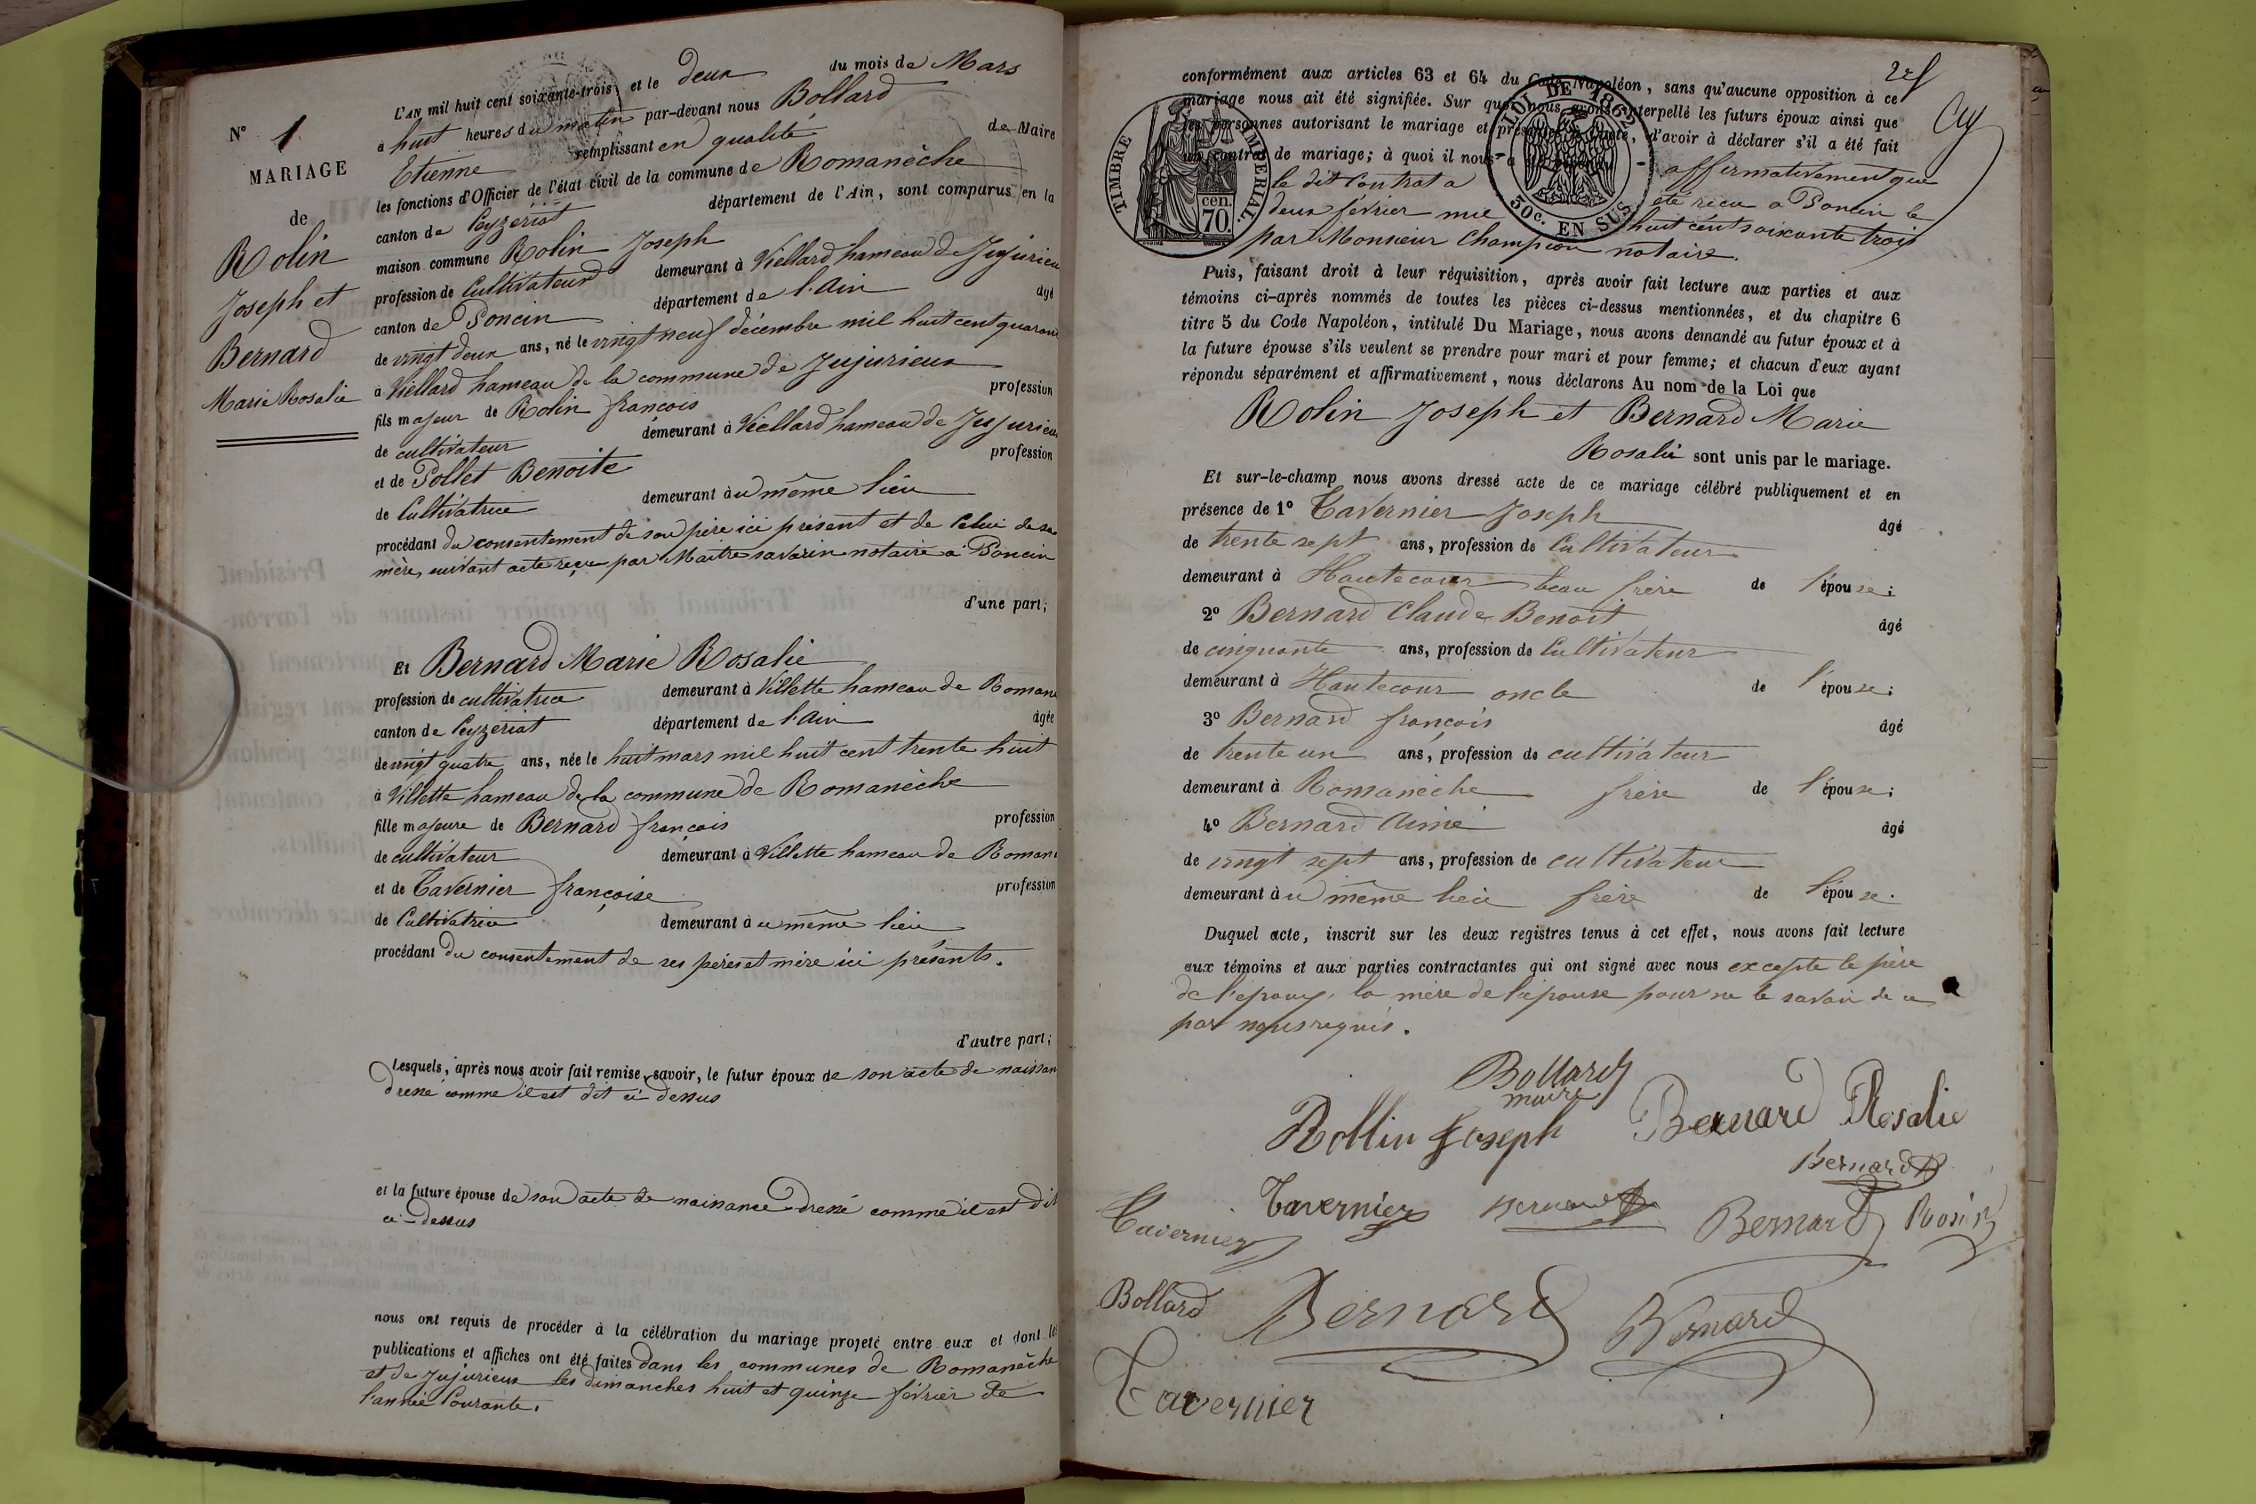 N° 1
MARIAGE
de
Rolin
Joseph et
Bernard
Marie Rosalie
L'AN mil huit cent soixante-trois et le deux du mois de Mars
à huit heures du matin par-devant nous Bollard
Etienne remplissant en qualité de Maire
les fonctions d'Officier de l'état civil de la commune de Romanèche
canton de Ceyzeriat département de l'Ain, sont comparus en la
maison commune Rolin Joseph
profession de Cultivateur demeurant à Viellard hameau de Jujurieu
canton de Poncin département de l'Ain âgé
de vingt deux ans, né le vingt neuf décembre mil huit cent quarante
à Viellard hameau de la commune de Jujurieux
fils majeur de Rolin françois profession
de cultivateur demeurant à Viellard hameau de Jujurieux
et de Pollet Benoite profession
de Cultivatrice demeurant au même lieu
procédant du consentement de son père ici présent et de Celui de sa
mère, suivant acte reçu par Maitre savarin notaire à Poncin
d'une part;
Et Bernard Marie Rosalie
profession de cultivatrice demeurant à Villette hameau de Romanè
canton de Ceyzeriat département de l'Ain âgée
de vingt quatre ans, née le huit mars mil huit cent trente huit
à Villette hameau de la commune de Romanèche
fille majeure de Bernard françois profession
de cultivateur demeurant à Villette hameau de Roman
et de Tavernier françoise profession
de Cultivatrice demeurant au même lieu
procédant du consentement de ses pères et mère ici présents.
d'autre part;
Lesquels, après nous avoir fait remise, savoir, le futur époux de son acte de naissan
dressé comme il est dit ci-dessus
et la future épouse de son acte de naissance dressé comme il est dit
ci-dessus
nous ont requis de procéder à la célébration du mariage projeté entre eux et dont les
publications et affiches ont été faites dans les communes de Romanèche
et de Jujurieux les dimanches huit et quinze février de
l'année Courante.
conformément aux articles 63 et 64 du Code Napoléon, sans qu'aucune opposition à ce
mariage nous ait été signifiée. Sur quoi nous avons interpellé les futurs époux ainsi que
les personnes autorisant le mariage et présentes à l'acte, d'avoir à déclarer s'il a été fait
un contrat de mariage; à quoi il nous a affirmativement que
le dit Contrat a été reçu a Poncin le
deux février mil huit cent soixante trois
par Monsieur Champion notaire.
TIMBRE IMPERIAL.
70. cen.
LOI DE 1862
50c. EN SUS
Puis, faisant droit à leur réquisition, après avoir fait lecture aux parties et aux
témoins ci-après nommés de toutes les pièces ci-dessus mentionnées, et du chapitre 6
titre 5 du Code Napoléon, intitulé Du Mariage, nous avons demandé au futur époux et à
la future épouse s'ils veulent se prendre pour mari et pour femme; et chacun d'eux ayant
répondu séparément et affirmativement, nous déclarons Au nom de la Loi que
Rolin Joseph et Bernard Marie
Rosalie sont unis par le mariage.
Et sur-le-champ nous avons dressé acte de ce mariage célébré publiquement et en
présence de 1° Tavernier Joseph âgé
de trente sept ans, profession de Cultivateur
demeurant à Hautecour beau frère de l'épouse;
2° Bernard Claude Benoit âgé
de cinquante ans, profession de Cultivateur
demeurant à Hautecour oncle de l'épouse;
3° Bernard françois âgé
de trente un ans, profession de cultivateur
demeurant à Romanèche frère de l'épouse;
4° Bernard Aimé âgé
de vingt sept ans, profession de cultivateur
demeurant au même lieu frère de l'épouse.
Duquel acte, inscrit sur les deux registres tenus à cet effet, nous avons fait lecture
aux témoins et aux parties contractantes qui ont signé avec nous excepte le père
de l'epoux, la mère de l'épouse pour ne le savoir de ce
par nous requis.
Bollard
maire
Rollin Joseph Bernard Rosalie
Bernard
Tavernier Tavernier Bernard Bernard Rosin
Bollard Bernard Bernard
Tavernier